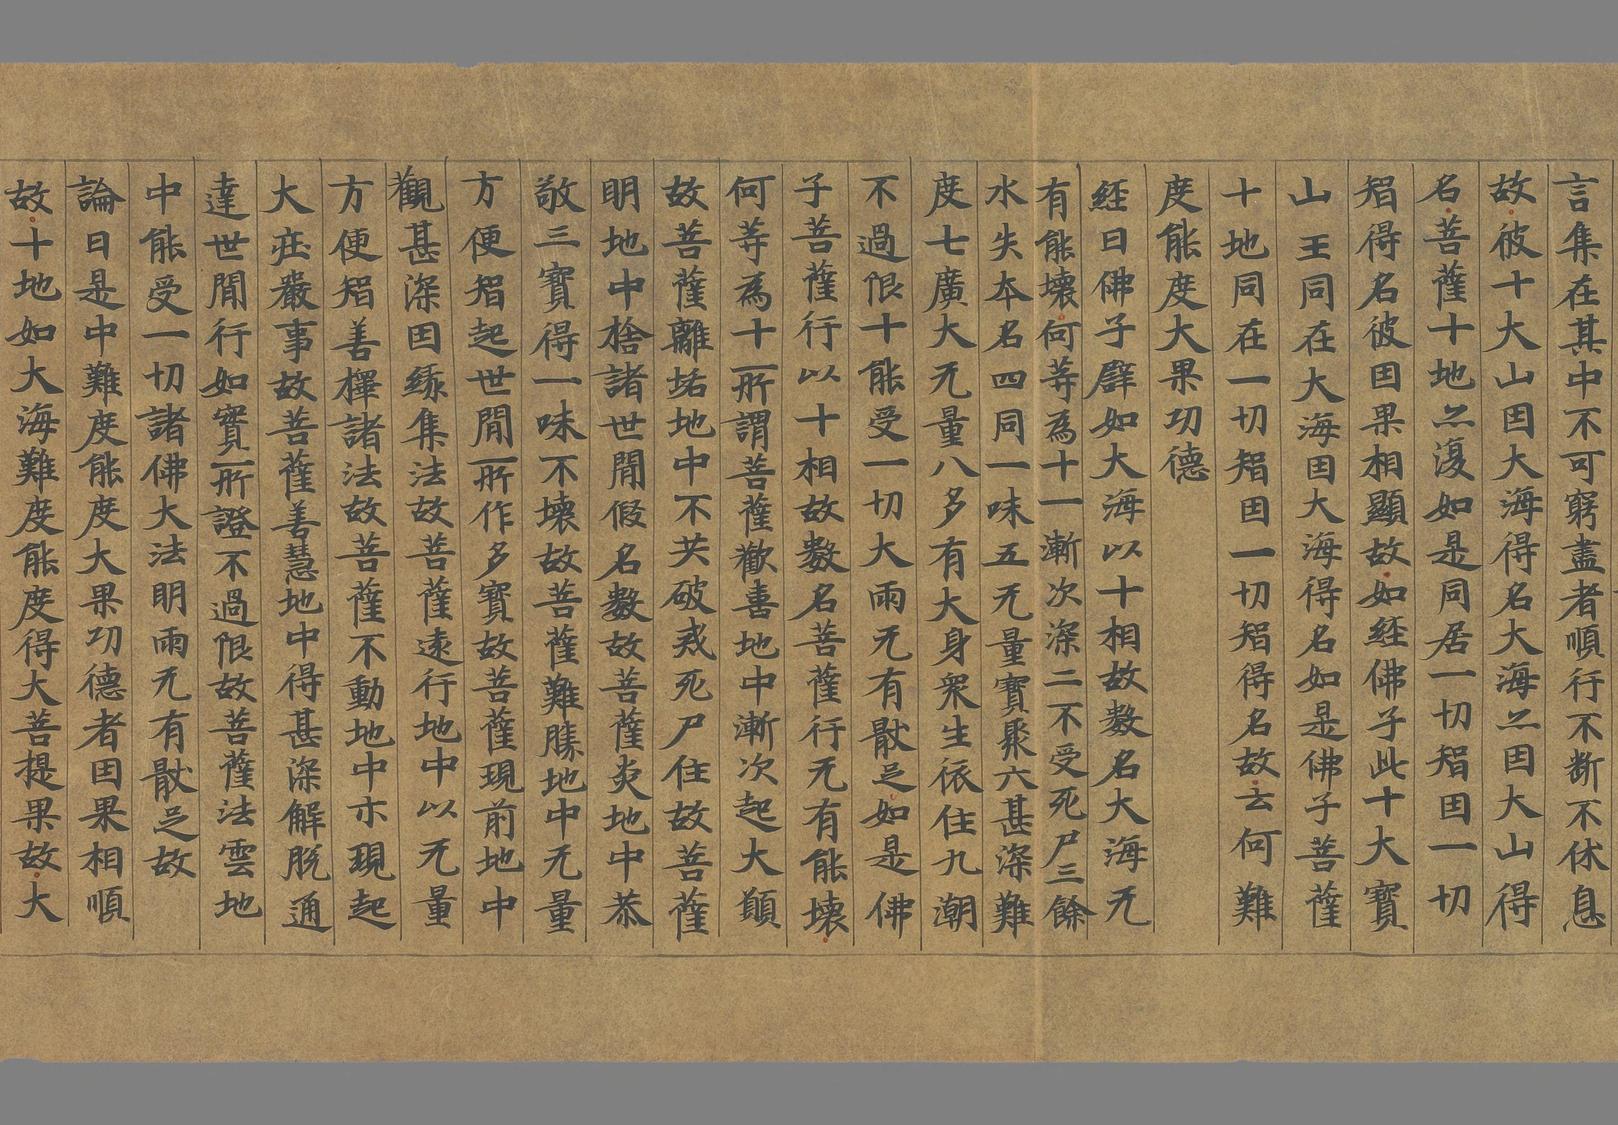 言集在其中不可窮盡者順行不断不休息
故彼十大山因大海得名大海亦因大山得
名菩薩十地亦復如是同居一切智因一切
智得名彼因果相顯故如經佛子此十大寶
山王同在大海因大海得名如是佛子菩薩
十地同在一切智因一切智得名故云何難
度能度大果功德
經曰佛子譬如大海以十相故數名大海无
有能壞何等為十一漸次深二不受死尸三餘
水失本名四同一味五无量寶聚六甚深難
度七廣大无量八多有大身衆生依住九潮
不過限十能受一切大雨无有猒足如是佛
子菩薩行以十相故數名菩薩行无有能壞
何等為十所謂菩薩歡喜地中漸次起大願
故菩薩離垢地中不共破戒死尸住故菩薩
明地中捨諸世間假名數故菩薩炎地中恭
敬三寶得一味不壞故菩薩難勝地中无量
方便智起世間所作多寶故菩薩現前地中
觀甚深因緣集法故菩薩遠行地中以无量
方便智善擇諸法故菩薩不動地中示現起
大莊嚴事故菩薩善慧地中得甚深解脫通
達世間行如實所證不過限故菩薩法雲地
中能受一切諸佛大法明雨无有猒足故
論曰是中難度能度大果功德者因果相順
故十地如大海難度能度得大菩提果故大